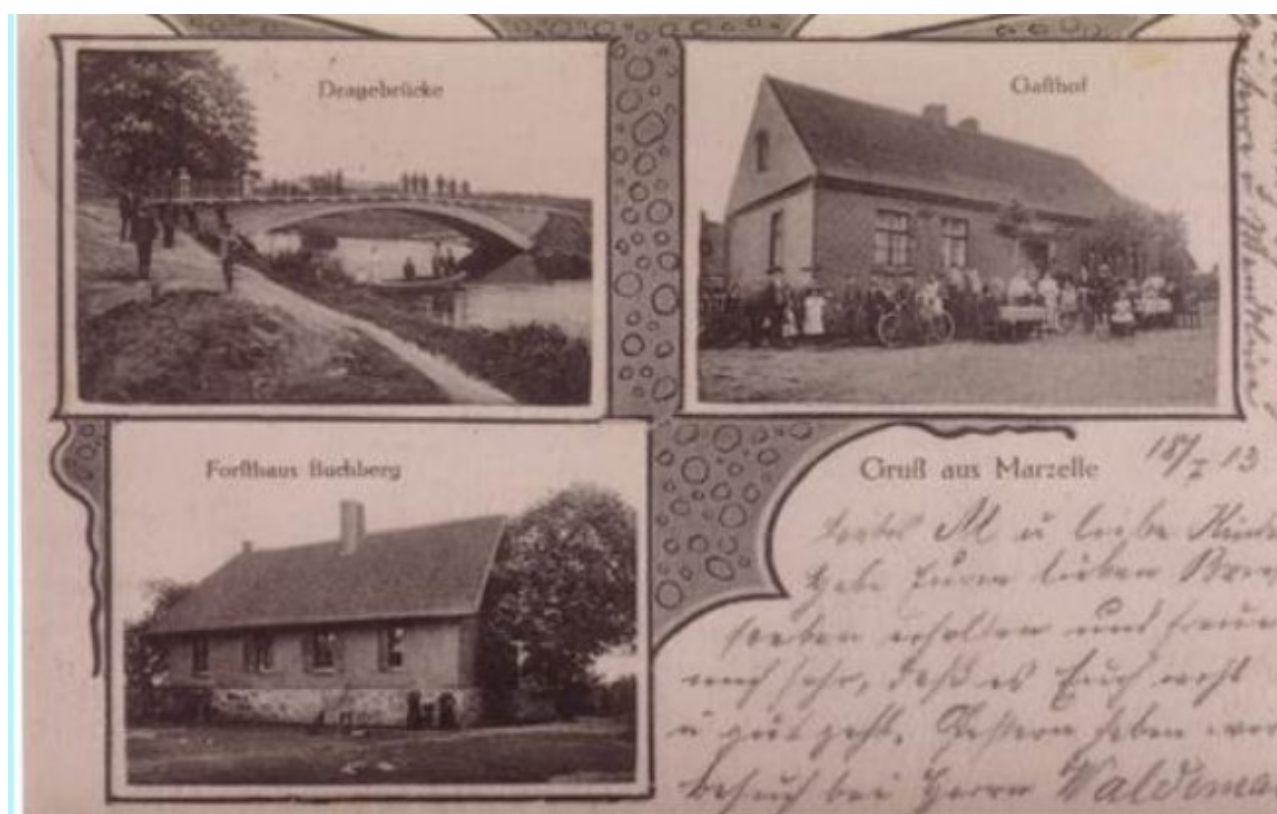 Dragebrücke
Gasthof
Forsthaus Buchberg
Gruß aus Marzelle
18/I 13
M u liebe Kinde
Habe Euren lieben Brie
soeben erhalten und freue
mich sehr, daß es Euch wohl
u gut geht. Gestern haben
besuch bei Herrn Waldema